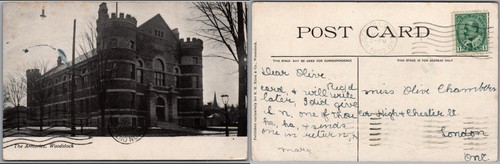 The Armories, Woodstock
POST CARD
THIS SPACE MAY BE USED FOR CORRESPONDENCE
THIS SPACE IS FOR ADDRESS ONLY
Dear Olive
Rec'd
card, & will write
later, I did give
I. N. one of those
ha, ha, & sends
one in return
mary
Miss Olive Chambers
Cor High & Chester St
London
Ont